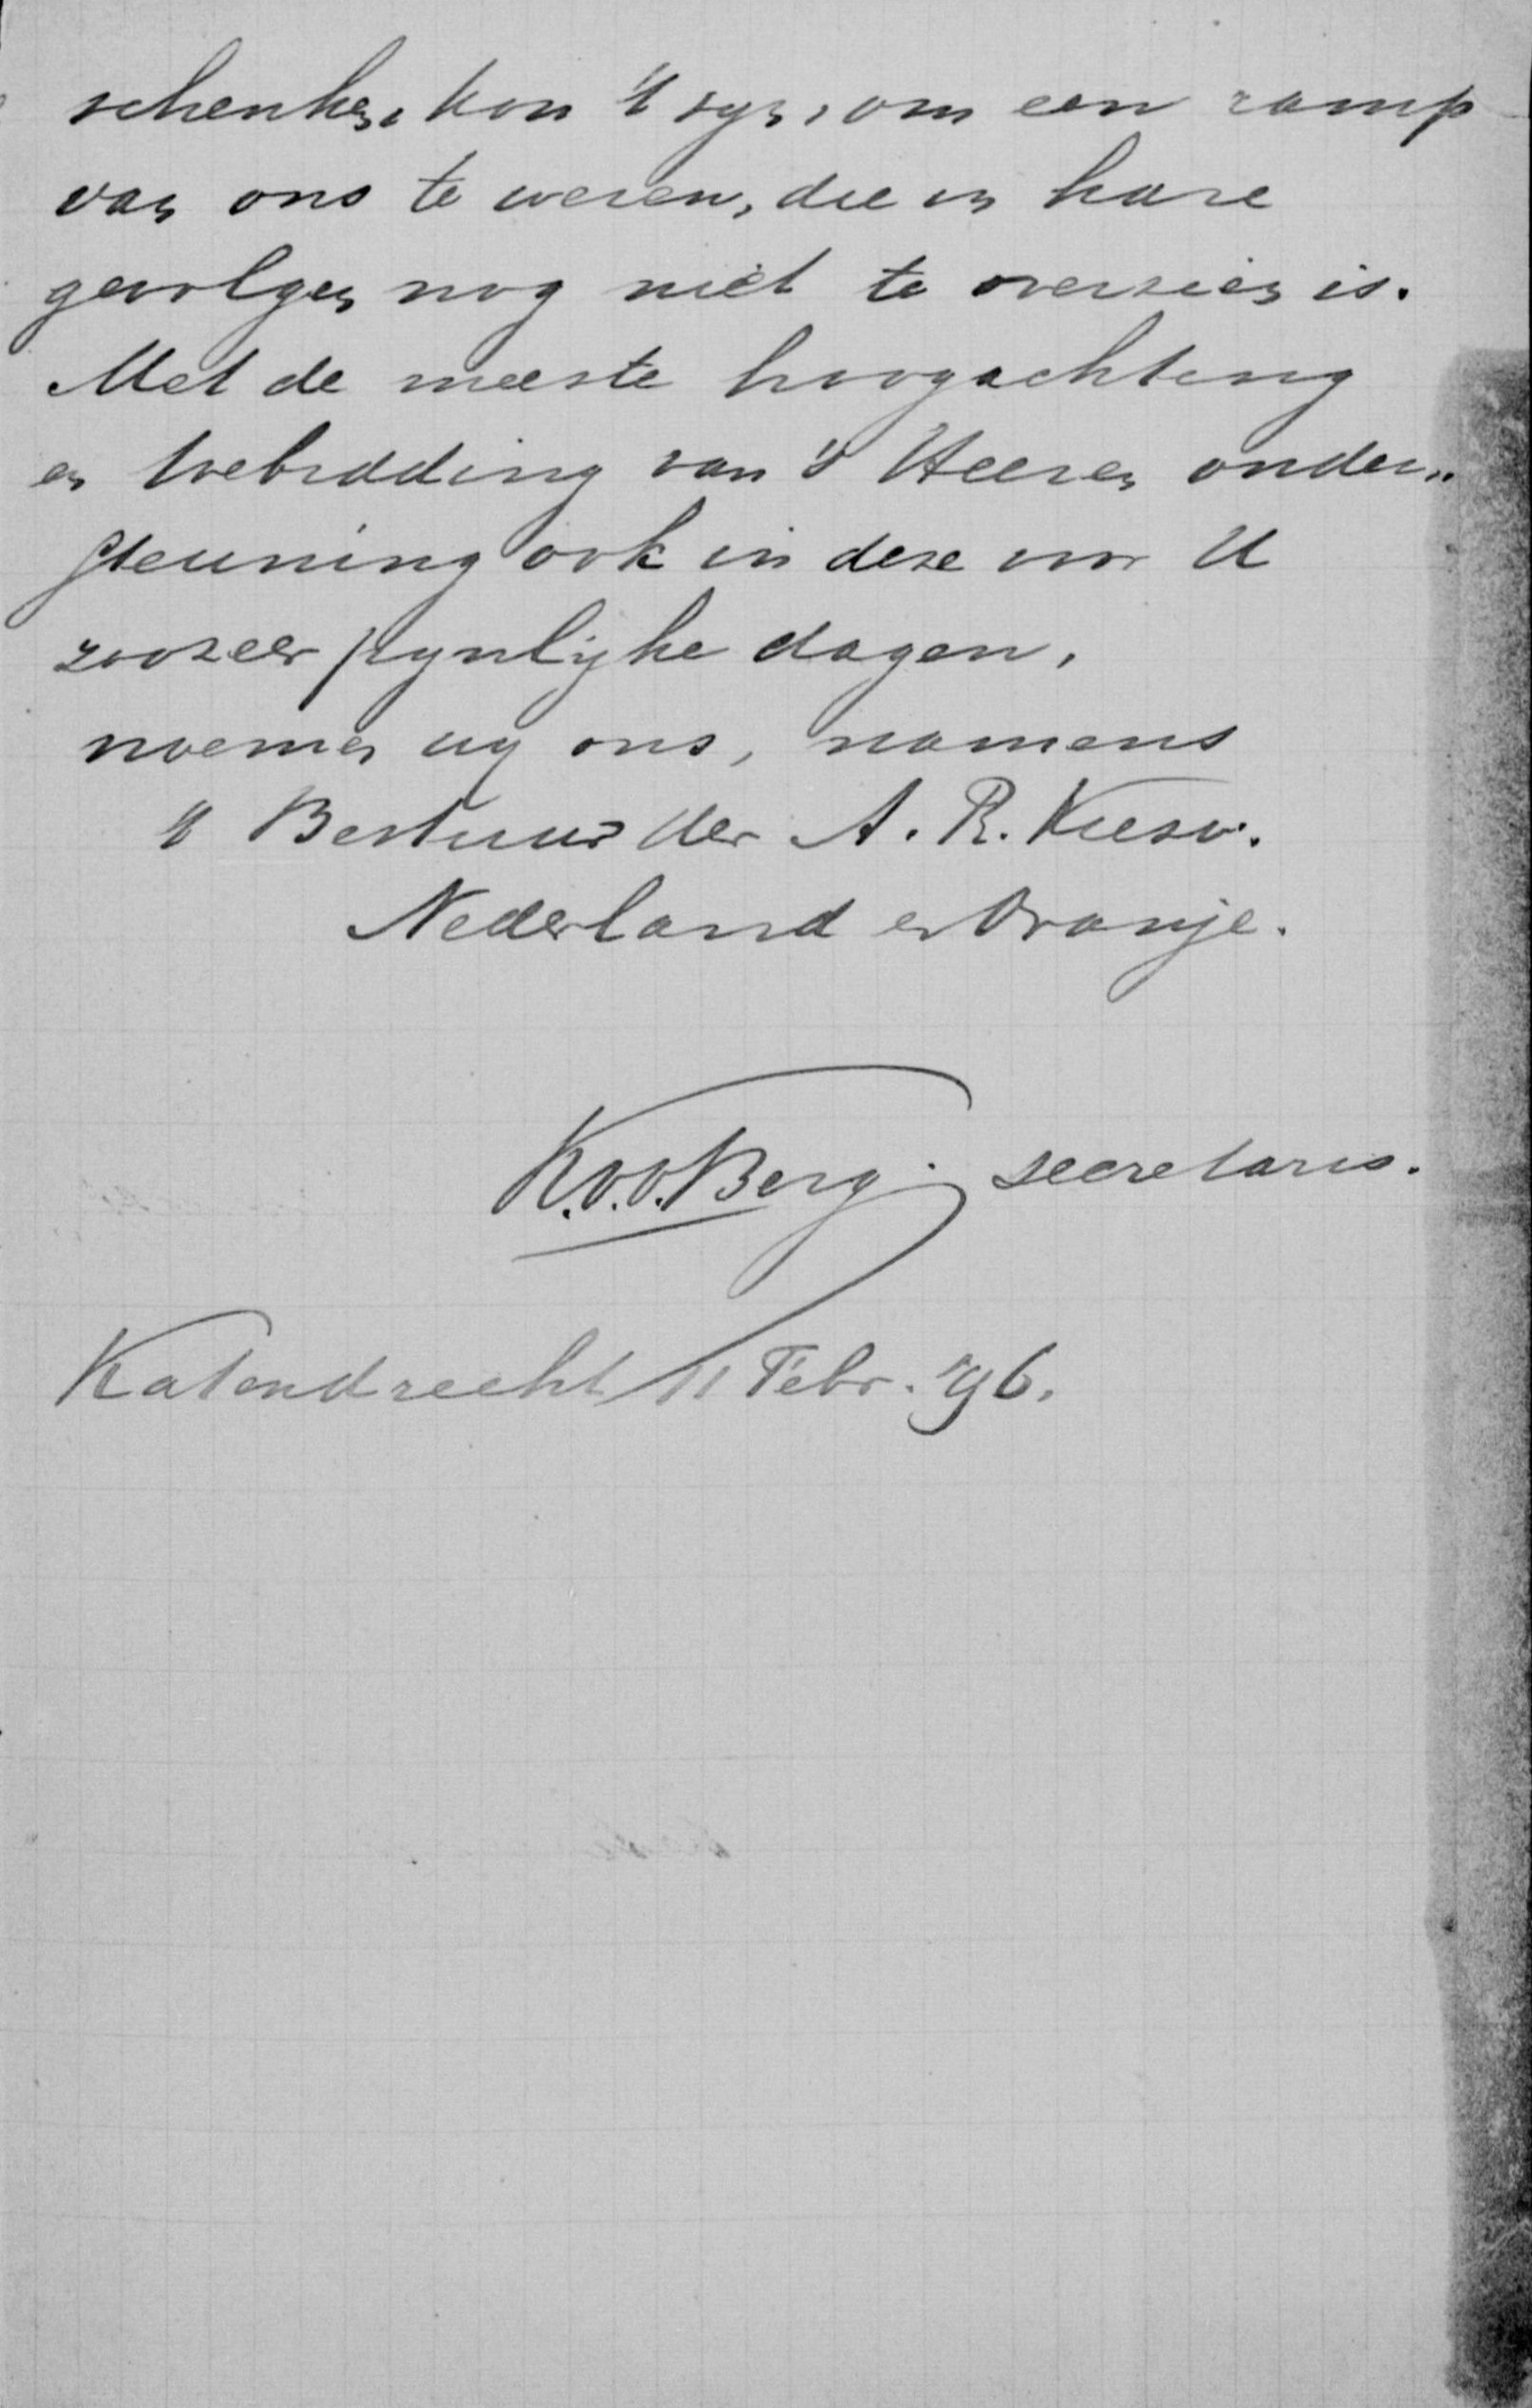 schenken, kon 't zyn, om een ramp
van ons te weren, die in hare
gevolgen nog niet te overzien is.
Met de meeste hoogachting
en toebidding van 's Heeren onder„
steuning ook in deze voor U
zoozeer pynlyke dagen,
noemen wy ons, namens
't Bestuur der A. R. Kiesv.
Nederland en Oranje.
K. v. d. Berg secretaris.
Katendrecht 11 Febr. '96.